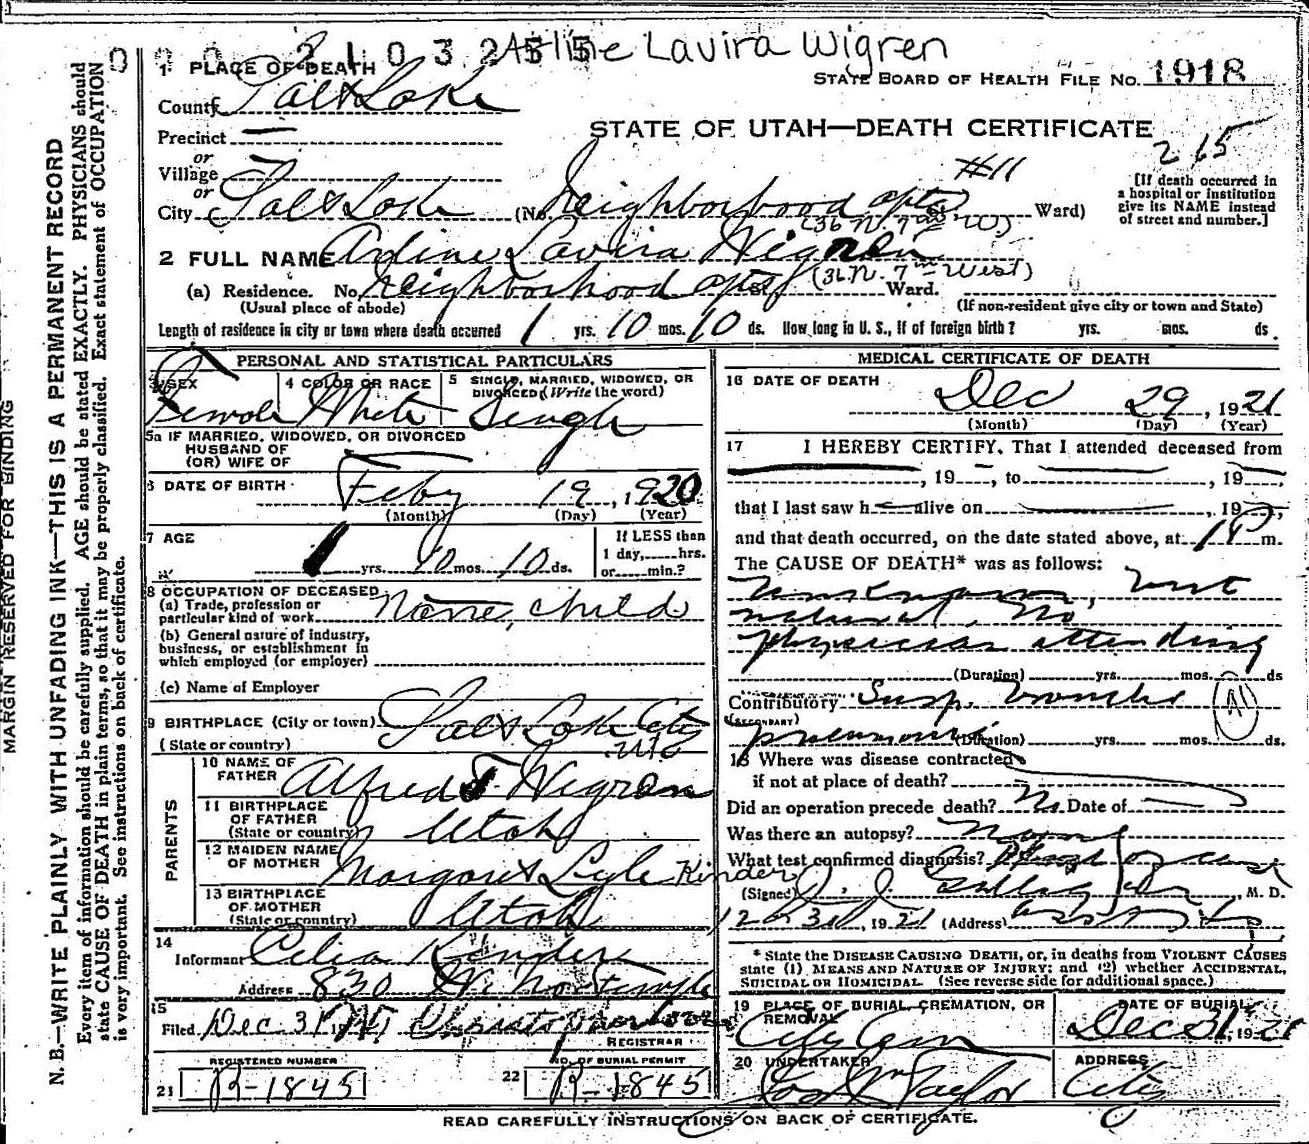 Arline Lavira Wigren
STATE BOARD OF HEALTH FILE NO. 1918
1 PLACE OF DEATH
County Salt Lake
STATE OF UTAH—DEATH CERTIFICATE
Precinct —
or
Village —
or
City Salt Lake (No. Neighborhood apts #11 St. Ward)
(36 N. 7th W)
265
[If death occurred in
a hospital or institution
give its NAME instead
of street and number.]
2 FULL NAME Arline Lavira Wigren
(a) Residence. No. Neighborhood apts St. (36 N. 7th West) Ward.
(Usual place of abode) (If non-resident give city or town and State)
Length of residence in city or town where death occurred 1 yrs. 10 mos. 10 ds. How long in U. S., if of foreign birth? yrs. mos. ds.
PERSONAL AND STATISTICAL PARTICULARS
3 SEX
Female
4 COLOR OR RACE
White
5 SINGLE, MARRIED, WIDOWED, OR
DIVORCED (Write the word)
Single
5a IF MARRIED, WIDOWED, OR DIVORCED
HUSBAND OF
(OR) WIFE OF
6 DATE OF BIRTH Feby 19, 1920
(Month) (Day) (Year)
7 AGE
1 yrs. 10 mos. 10 ds.
If LESS than
1 day, hrs.
or min.?
8 OCCUPATION OF DECEASED
(a) Trade, profession or
particular kind of work None, child
(b) General nature of industry,
business, or establishment in
which employed (or employer)
(c) Name of Employer
9 BIRTHPLACE (City or town) Salt Lake City
(State or country)
PARENTS
10 NAME OF
FATHER Alfred T Wigren
11 BIRTHPLACE
OF FATHER
(State or country) Utah
12 MAIDEN NAME
OF MOTHER Margaret Lyle Kinder
13 BIRTHPLACE
OF MOTHER
(State or country) Utah
14
Informant Celia Kinder
Address 830 W. No Temple
15
Filed Dec 31
REGISTRAR
REGISTERED NUMBER
21 R-1845
NO. OF BURIAL PERMIT
22 R-1845
MEDICAL CERTIFICATE OF DEATH
16 DATE OF DEATH
Dec 29, 1921
(Month) (Day) (Year)
17 I HEREBY CERTIFY, That I attended deceased from
, 19 —, to , 19
that I last saw h alive on , 19 ,
and that death occurred, on the date stated above, at 1 P m.
The CAUSE OF DEATH* was as follows:
Unknown, but
natural, No
physician attending
(Duration) yrs. mos. ds
Contributory Susp. broncho
(SECONDARY)
pneumonia (Duration) yrs. mos. ds.
18 Where was disease contracted
if not at place of death?
Did an operation precede death? No Date of
Was there an autopsy? None
What test confirmed diagnosis?
(Signed) M. D.
12-31, 1921 (Address)
* State the DISEASE CAUSING DEATH, or, in deaths from VIOLENT CAUSES
state (1) MEANS AND NATURE OF INJURY; and (2) whether ACCIDENTAL,
SUICIDAL OR HOMICIDAL. (See reverse side for additional space.)
19 PLACE OF BURIAL, CREMATION, OR
REMOVAL
City Cem
DATE OF BURIAL
Dec 31, 19
20 UNDERTAKER
Jos Wm Taylor
ADDRESS
City
READ CAREFULLY INSTRUCTIONS ON BACK OF CERTIFICATE.
MARGIN RESERVED FOR BINDING
N. B.—WRITE PLAINLY WITH UNFADING INK—THIS IS A PERMANENT RECORD
Every item of information should be carefully supplied. AGE should be stated EXACTLY. PHYSICIANS should
state CAUSE OF DEATH in plain terms, so that it may be properly classified. Exact statement of OCCUPATION
is very important. See instructions on back of certificate.